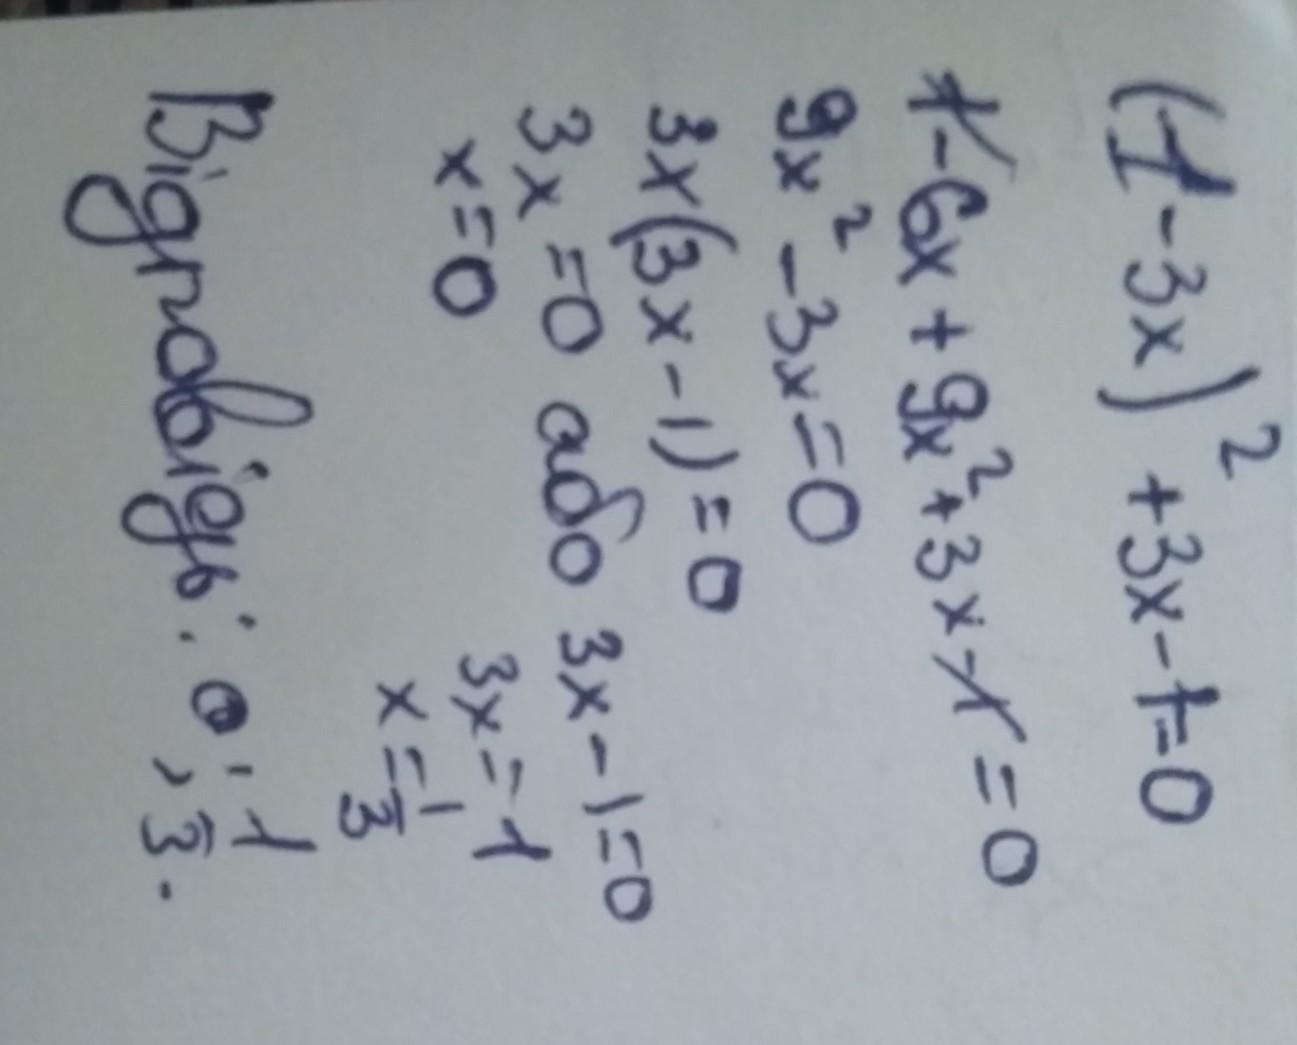 (1-3x)² +3x-1=0
1-6x+9x²+3x-1=0
9x²-3x=0
3x(3x-1)=0
3x=0 або 3x-1=0
x=0 3x=1
x=1/3
Відповідь: 0; 1/3.